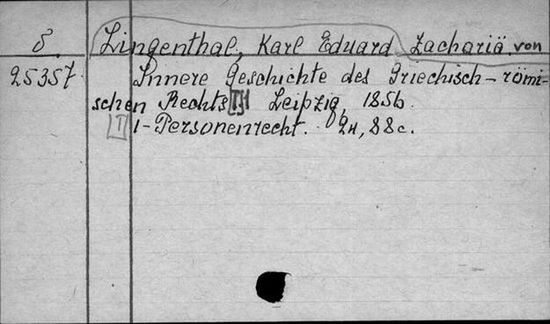 8. Lingenthal, Karl Eduard Zachariä von
25357. Innere Geschichte des Griechisch-römi=
schen Rechts [I] Leipzig, 1856.
[I] 1-Personenrecht. 88c.